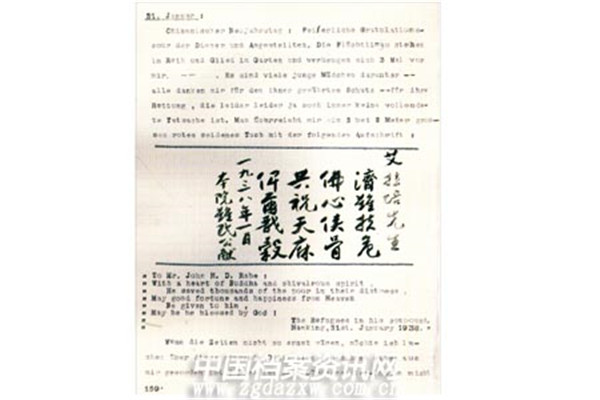 31. Januar :
Chinesischer Neujahrstag : Feierliche Gratulations-
cour der Diener und Angestellten. Die Flüchtlinge stehen
in Reih und Glied im Garten und verbeugen sich 3 Mal vor
mir. -- . Es sind viele junge Mädchen darunter --
alle danken mir für den ihnen gewährten Schutz -- für ihre
Rettung, die leider leider ja noch immer keine vollkomm-
Tatsache ist. Man überreicht mir ein 3 bei 2 Meter gros-
ses rotes seidenes Tuch mit der folgenden Aufschrift :
艾拉培先生
濟難扶危
佛心俠骨
共祝天庥
俾爾戩穀
一九三八年一月
本院難民公獻
To Mr. John H. D. Rabe :
With a heart of Buddha and chivalrous spirit,
He saved thousands of the poor in their distress,
May good fortune and happiness from Heaven
Be given to him,
May he be blessed by God :
The Refugees in his
Nanking, 31st. January 1938.
Wenn die Zeiten nicht so ernst
159.
中国档案资讯网
www.zgdazxw.com.cn